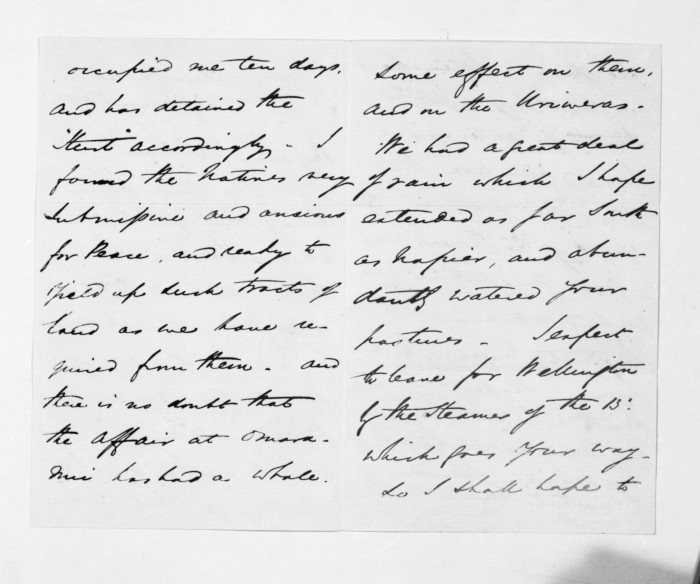 occupied me ten days.
and has detained the
"Sturt" accordingly - I
found the Natives very
submissive and anxious
for Peace, and ready to
yield up such tracts of
land as we have re-
quired from them. and
there is no doubt that
the affair at Omara-
nui has had a whole.
some effect on them,
and on the Uriweras -
We had a great deal
of rain which I hope
extended as far South
as Napier, and abun-
dantly watered your
pastures - I expect
to leave for Wellington
by the Steamer of the 13:
which goes your way -
so I shall hope to